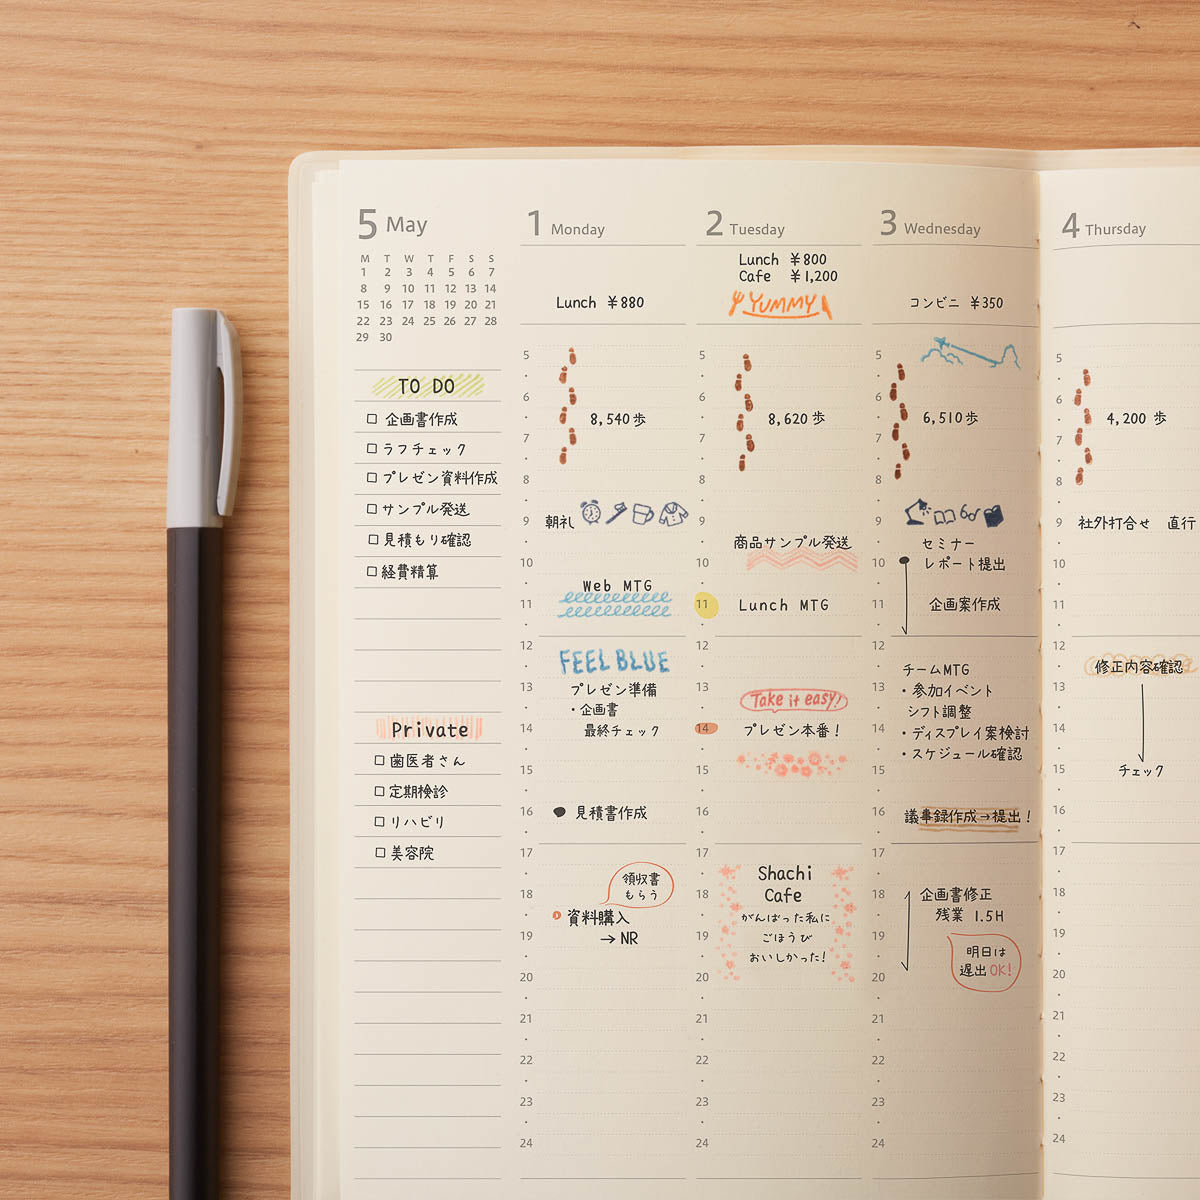 5 May
M T W T F S S
1 2 3 4 5 6 7
8 9 10 11 12 13 14
15 16 17 18 19 20 21
22 23 24 25 26 27 28
29 30
TO DO
企画書作成
ラフチェック
プレゼン資料作成
サンプル発送
見積もり確認
経費精算
Private
歯医者さん
定期検診
リハビリ
美容院
1 Monday
Lunch ¥880
5
6
8,540歩
7
8
9 朝礼
10
Web MTG
11
12
FEEL BLUE
13 プレゼン準備
・企画書
14 最終チェック
15
16 見積書作成
17
領収書
18 もらう
資料購入
19 →NR
20
21
22
23
24
2 Tuesday
Lunch ¥800
Cafe ¥1,200
YUMMY
5
6
8,620歩
7
8
9
商品サンプル発送
10
11 Lunch MTG
12
13 Take it easy!
14 プレゼン本番!
15
16
17
Shachi
18 Cafe
がんばった私に
19 ごほうび
おいしかった!
20
21
22
23
24
3 Wednesday
コンビニ ¥350
5
6
6,510歩
7
8
9
セミナー
10 レポート提出
11 企画案作成
12
チームMTG
13 ・参加イベント
シフト調整
14 ・ディスプレイ案検討
・スケジュール確認
15
16 議事録作成→提出!
17
18 企画書修正
残業 1.5H
19
明日は
20 遅出OK!
21
22
23
24
4 Thursday
5
6
4,200歩
7
8
9 社外打合せ 直行
10
11
12
修正内容確認
13
14
15 チェック
16
17
18
19
20
21
22
23
24